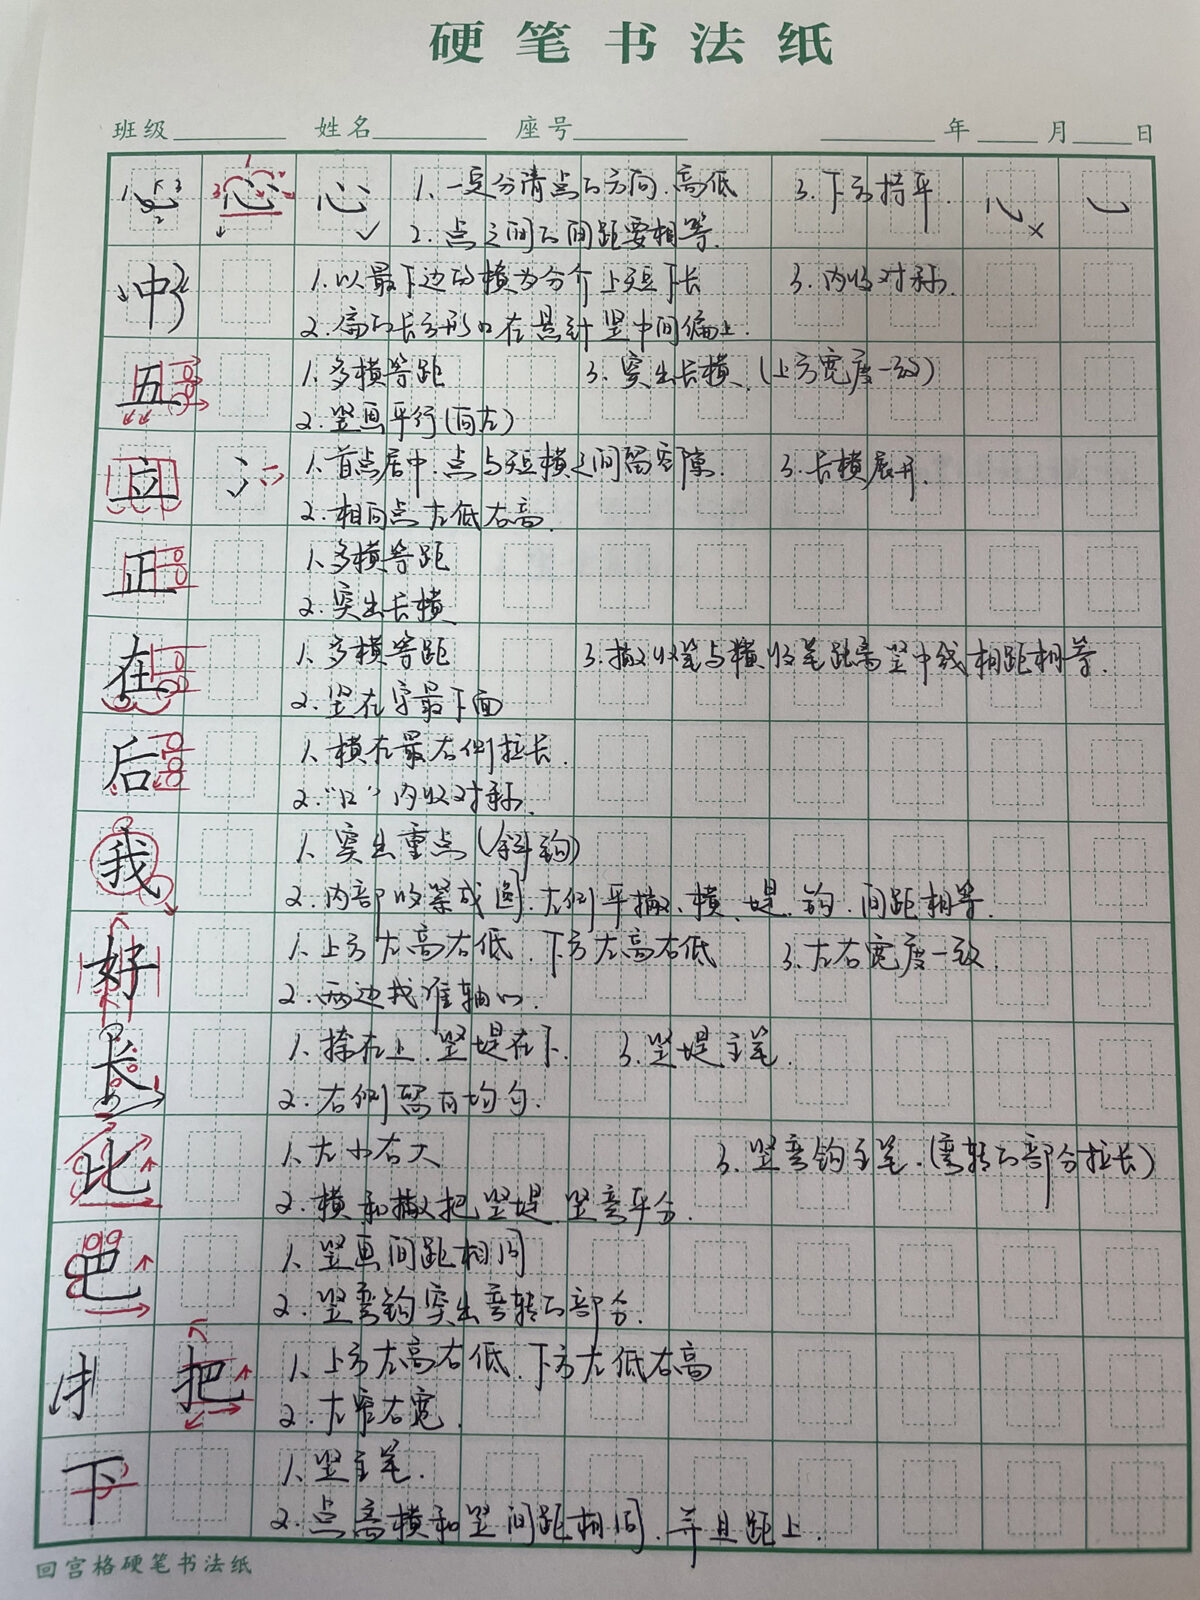 硬笔书法纸
班级 姓名 座号 年 月 日
心 心 心 1. 一定分清点的方向、高低 3. 下方持平.
2. 点之间的间距要相等.
中 1. 以最下边的横为分介上短下长 3. 内收对称.
2. 扁的长方形口在悬针竖中间偏上.
五 1. 多横等距 3. 突出长横 (上方宽度一致)
2. 竖画平行(向左)
立 1. 首点居中,点与短横之间留空隙. 3. 长横展开.
2. 相向点左低右高.
正 1. 多横等距
2. 突出长横
在 1. 多横等距 3. 撇收笔与横收笔距离竖中线相距相等.
2. 竖在字最下面
后 1. 横在最右侧拉长.
2. “口”内收对称.
我 1. 突出重点(斜钩)
2. 内部收紧成圆,左侧平撇、横、堤、钩,间距相等.
好 1. 上方左高右低,下方左高右低 3. 左右宽度一致.
2. 两边找准轴心.
长 1. 捺在上,竖堤在下. 3. 竖堤主笔.
2. 右侧留白均匀.
比 1. 左小右大 3. 竖弯钩主笔.(弯转的部分拉长)
2. 横和撇把竖堤、竖弯平分.
巴 1. 竖画间距相同
2. 竖弯钩突出弯转的部分.
扌 把 1. 上方左高右低,下方左低右高
2. 左窄右宽.
下 1. 竖主笔.
2. 点离横和竖间距相同,并且距上.
回宫格硬笔书法纸